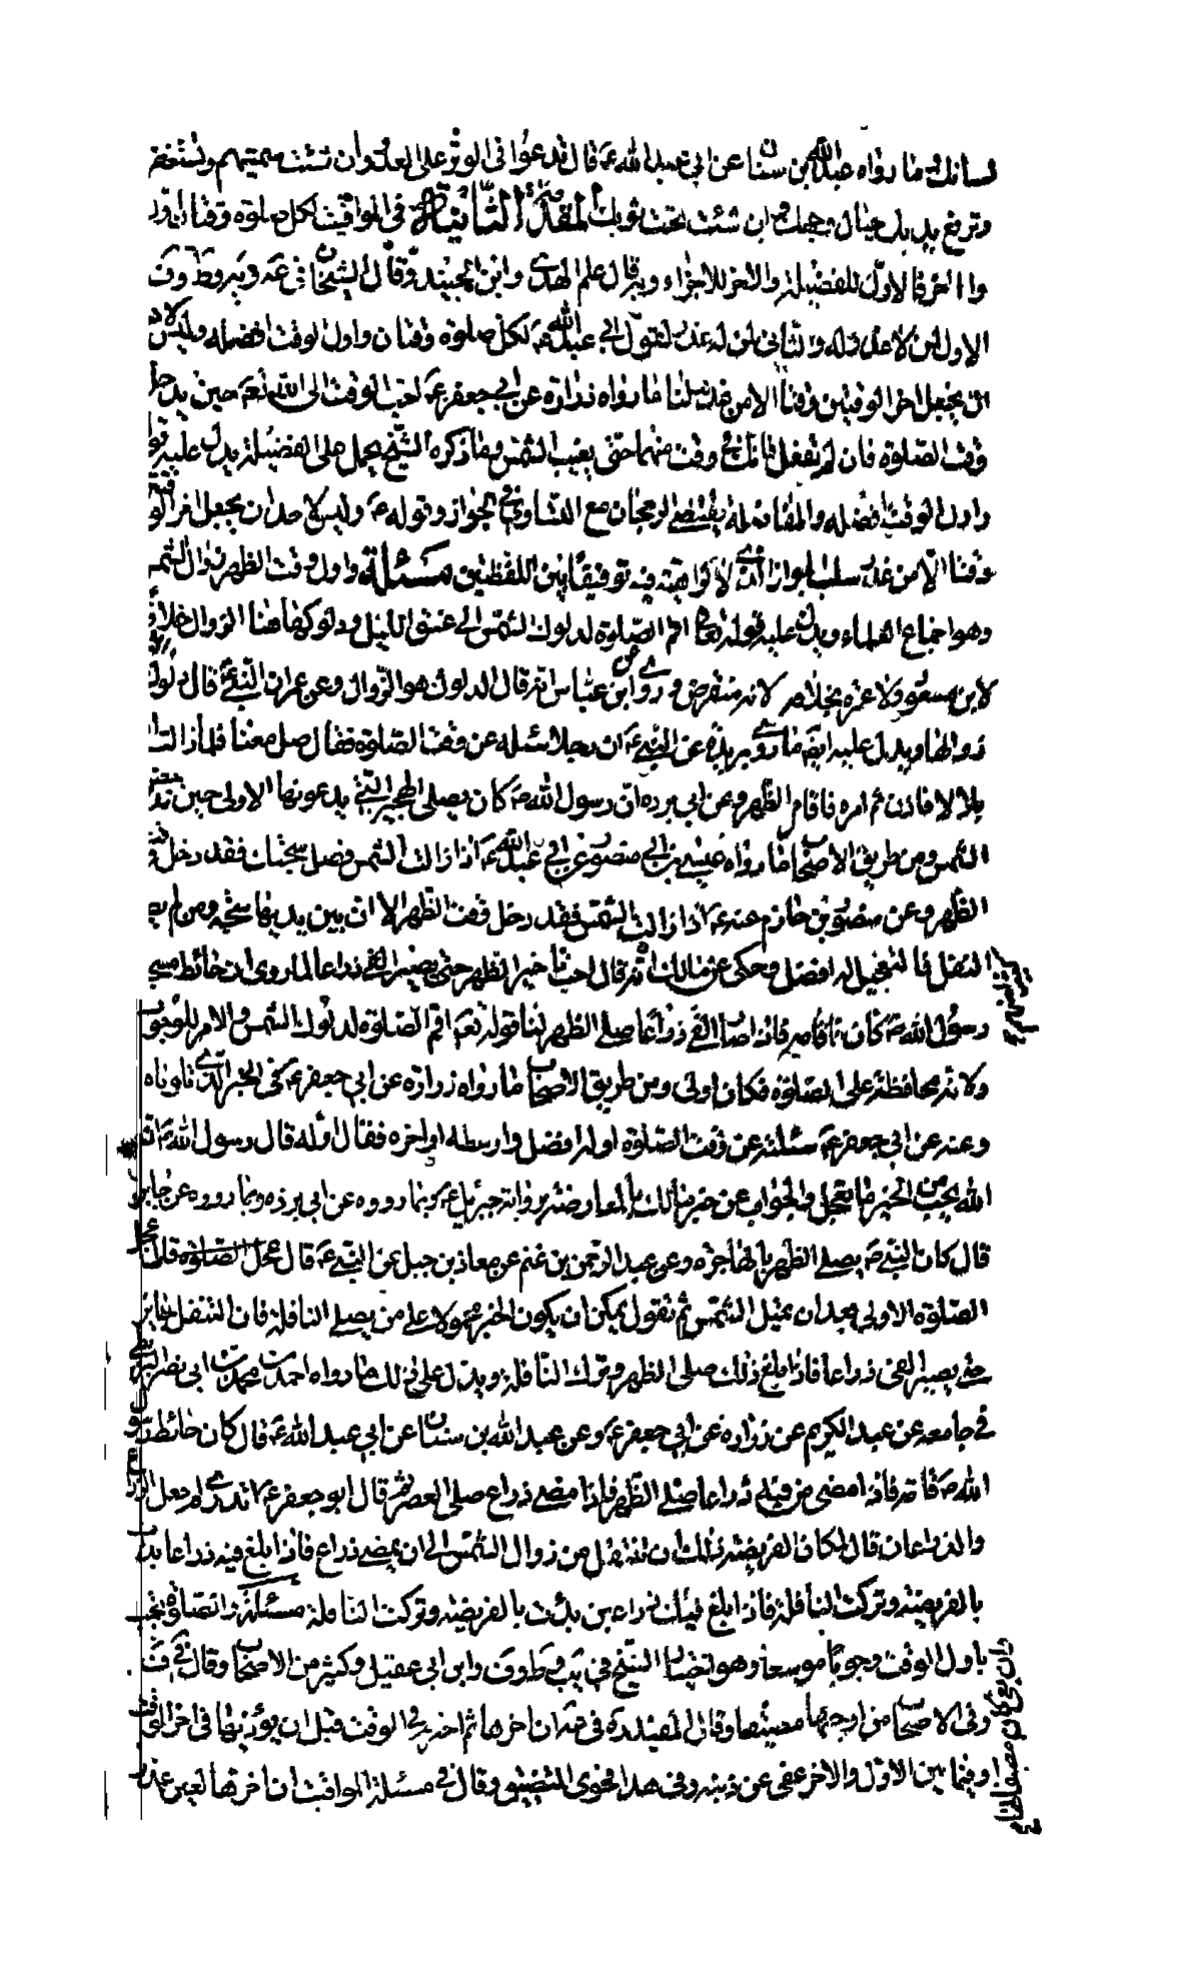 لسانك ما رواه عبد الله بن سنان عن ابي عبد الله ع قال تدعوا في الوتر على العدو وان شئت سميتهم وتستغفر
وترفع يديك حيال وجهك وان شئت تحت ثوبك المقدمة الثانية في المواقيت لكل صلوة وقتان اول
واخر فالاول للفضيلة والاخر للاجزاء وبه قال علم الهدى وابن الجنيد وقال الشيخان في عه ويه وط وف
الاول لمن لا عذر له والثاني لمن له عذر لنا قول ابي عبد الله ع لكل صلوة وقتان واول الوقت افضله وليس لاحد
ان يجعل اخر الوقتين وقتا الا من عذر لنا ما رواه زرارة عن ابي جعفر ع احب الوقت الى الله تعم حين يدخل
وقت الصلوة فان لم تفعل فانك في وقت منهما حتى يغيب الشمس وما ذكره الشيخ يحمل على الفضيلة يدل عليه قوله
واول الوقت افضله والمفاضلة يقتضي الرجحان مع التساوي في الجواز وقوله ع وليس لاحد ان يجعل اخر الوقتين
وقتا الا من عذر سلب لجواز الذي لا كراهية فيه توفيقا بين اللفظين مسئلة واول وقت الظهر زوال الشمس
وهو اجماع العلماء ويدل عليه قوله تعا اقم الصلوة لدلوك الشمس الى غسق الليل ودلوكها هنا الزوال خلافا
لابن مسعود ولا عبرة بخلافه لانه منقرض وروى عن ابن عباس انه قال الدلوك هو الزوال وعن عمر ان النبي ع قال دلوك
زوالها ويدل عليه ايضا ما روى بريدة عن النبي ع ان رجلا سئله عن وقت الصلوة فقال صل معنا فلما زالت امر
بلالا فاذن ثم امره فاقام الظهر وعن ابي برده ان رسول الله ص كان يصلي الهجير التي يدعونها الاولى حين تدحض
الشمس ومن طريق الاصحاب ما رواه عيسى بن ابي منصور عن ابي عبد الله ع اذا زالت الشمس فصل سبحتك فقد دخل وقت
الظهر وعن منصور بن حازم عنه ع اذا زالت الشمس فقد دخل وقت الظهر الا ان بين يديها سبحه ومن لم يصل
النفل فالتعجيل له افضل وحكى عن مالك انه قال احب تاخير الظهر حتى يصير الفئ ذراعا لما روى ان حائط مسجد
رسول الله ص كان قامة فاذا صار الفئ ذراعا صلى الظهر لنا قوله تعم اقم الصلوة لدلوك الشمس والامر للوجوب
ولانه محافظة على الصلوة فكان اولى ومن طريق الاصحاب ما رواه زرارة عن ابي جعفر ع في الخبر الذي تلوناه
وعنه عن ابي جعفر ع سئلته عن وقت الصلوة اوله افضل او اوسطه او اخره فقال اوله قال رسول الله ص ان
الله يحب من الخير ما يعجل والجواب عن خبر مالك بالمعارضة برواية جبرئيل ع وبما رووه عن ابي برزه وبما رووه عن جابر
قال كان النبي ص يصلي الظهر بالهاجرة وعن عبد الرحمن بن غنم عن معاذ بن جبل عن النبي ع قال
الصلوة الاولى بعد ان يميل الشمس ثم نقول يمكن ان يكون الخبر محمولا على من يصلي النافلة فان التنفل جايز
حتى يصير الفئ ذراعا فاذا بلغ ذلك صلى الظهر وترك النافلة ويدل على ذلك ما رواه احمد بن محمد بن ابي نصر البزنطي
في جامعه عن عبد الكريم عن زرارة عن ابي جعفر ع وعن عبد الله بن سنان عن ابي عبد الله ع قال كان حائط رسول
الله ص قامة فاذا مضى من فيئه ذراعا صلى الظهر فاذا مضى ذراع صلى العصر ثم قال ابو جعفر ع اتدري لم جعل الذراع
والذراعان قال لمكان الفريضة لك ان تتنفل من زوال الشمس الى ان يمضي ذراع فاذا بلغ فيئه ذراعا بدات
بالفريضة وتركت النافلة فاذا بلغ فيئك ذراعين بدئت بالفريضة وتركت النافلة مسئلة والصلوة يجب
باول الوقت وجوبا موسعا وهو اختيار الشيخ في يه وط وف وابن ابي عقيل وكثير من الاصحاب وقال في ف
وفي الاصحاب من اوجبها مضيقا وقال المفيد ره في ان اخرها ثم اخترم في الوقت قبل ان يؤديها في اخر الوقت
او فيما بين الاول والاخر عفي عن ذنبه وفي هذا فحوى التضييق وقال في مسئلة المواقيت ان اخرها لغير عذر